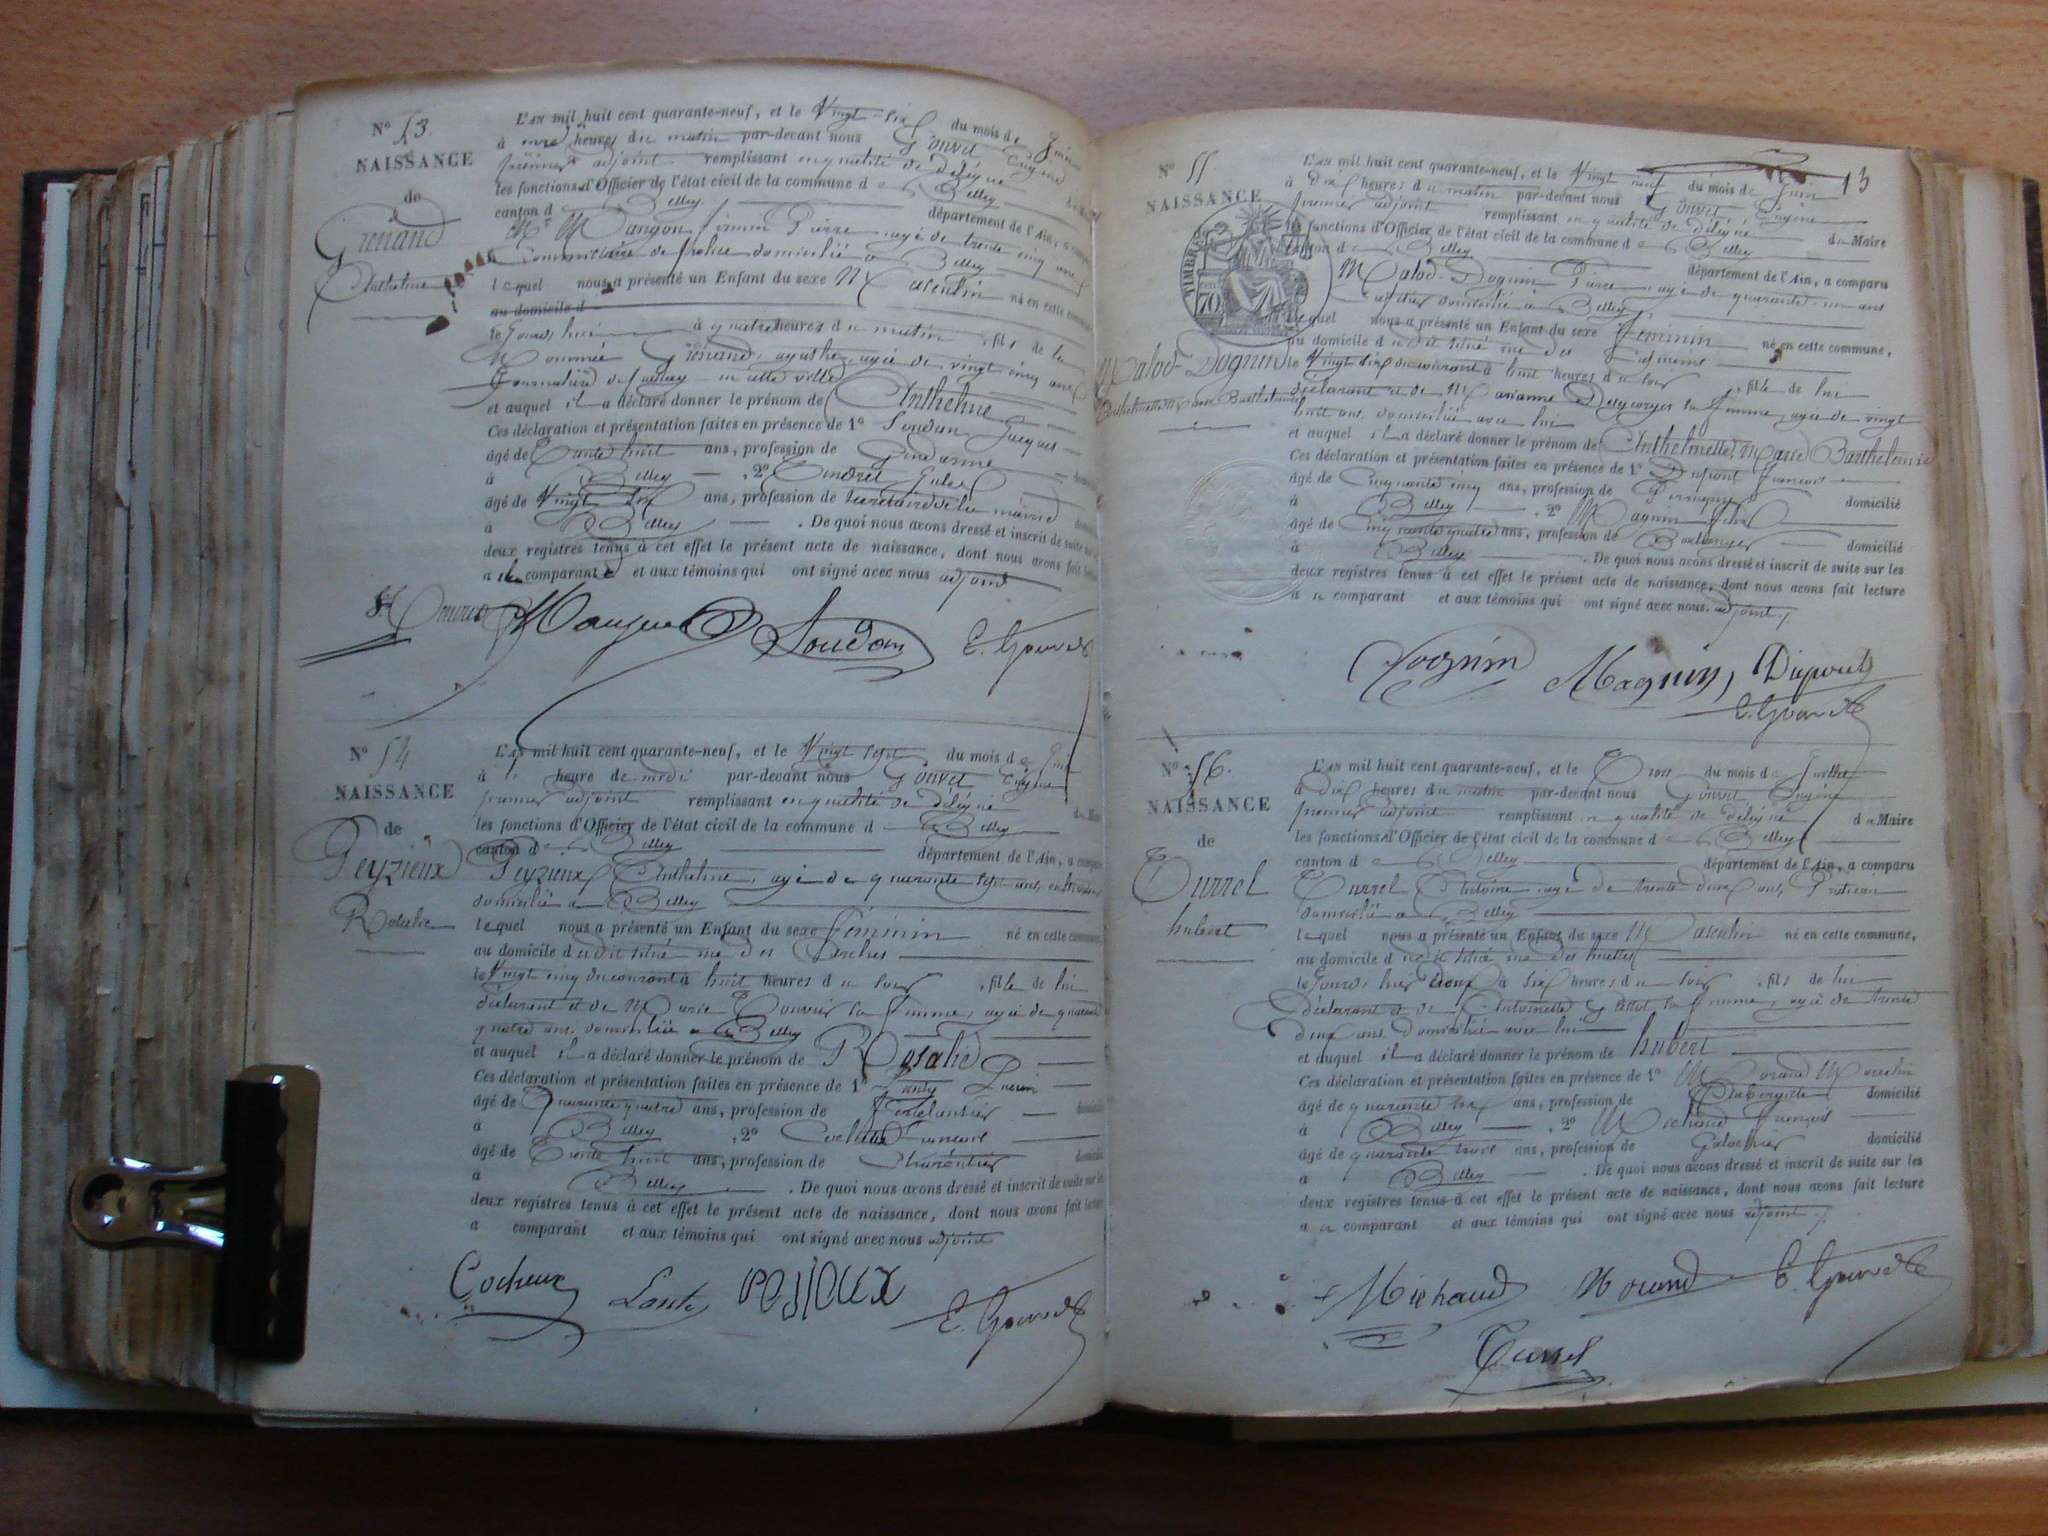 N° 53.
NAISSANCE
de
Grenand
Anthelme
L'AN mil huit cent quarante-neuf, et le Vingt-six du mois de Juin
à onze heures du matin par-devant nous Gouvet Eugène
premier adjoint remplissant en qualité de délégué
les fonctions d'Officier de l'état civil de la commune de Belley
canton de Belley département de l'Ain, a comparu
Mr Pierre âgé de trente cinq ans
Commissaire de police domicilié à Belley
lequel nous a présenté un Enfant du sexe Masculin né en cette commune
au domicile d
le jourd'hui à quatre heures du matin, fils de la
Nommée Grenand, âgée de vingt cinq ans
Journalière en cette ville
et auquel il a déclaré donner le prénom de Anthelme
Ces déclaration et présentation faites en présence de 1° Soudan Jacques
âgé de Trente huit ans, profession de Gendarme
à Belley 2°
âgé de Vingt six ans, profession de secrétaire de la mairie
à Belley. De quoi nous avons dressé et inscrit de suite sur les
deux registres tenus à cet effet le présent acte de naissance, dont nous avons fait lecture
a le comparant et aux témoins qui ont signé avec nous adjoint
Soudan E. Gouvet
N° 54
NAISSANCE
de
Peyzieux
Rosalie
L'AN mil huit cent quarante-neuf, et le Vingt sept du mois de Juin
à heure de midi par-devant nous Gouvet Eugène
premier adjoint remplissant en qualité de délégué du Maire
les fonctions d'Officier de l'état civil de la commune de Belley
canton de Belley département de l'Ain, a comparu
Peyzieux Anthelme, âgé de quarante sept ans,
domicilié à Belley
lequel nous a présenté un Enfant du sexe Féminin né en cette commune
au domicile du dit situé rue des Barches
le Vingt cinq du courant à huit heures du soir, fille de lui
déclarant et de Marie Bouvier sa femme, âgée de quarante
quatre ans, domiciliée à Belley
et auquel il a déclaré donner le prénom de Rosalie
Ces déclaration et présentation faites en présence de 1° Lanty
âgé de Quarante quatre ans, profession de Ferblantier
à Belley, 2° Cocheux François
âgé de Trente huit ans, profession de Charpentier
à Belley. De quoi nous avons dressé et inscrit de suite sur les
deux registres tenus à cet effet le présent acte de naissance, dont nous avons fait lecture
a comparant et aux témoins qui ont signé avec nous adjoint
Cocheux Lanty E. Gouvet
13
N° 55
NAISSANCE
TIMBRE
70
Malod-Dognin
L'AN mil huit cent quarante-neuf, et le Vingt neuf du mois de Juin
à dix heures du matin par-devant nous Gouvet Eugène
premier adjoint remplissant en qualité de délégué du Maire
les fonctions d'Officier de l'état civil de la commune de Belley
canton de Belley département de l'Ain, a comparu
Malod-Dognin Pierre, âgé de quarante un ans
domicilié à Belley
lequel nous a présenté un Enfant du sexe Féminin né en cette commune,
au domicile du dit situé rue des
le Vingt six du courant à huit heures du soir, fille de lui
déclarant et de Marianne sa femme, âgée de vingt
huit ans, domiciliée avec lui
et auquel il a déclaré donner le prénom de Anthelmette Marie Barthelemie
Ces déclaration et présentation faites en présence de 1° Dupont François
âgé de Cinquante cinq ans, profession de Perruquier domicilié
à Belley, 2° Magnin
âgé de Cinquante quatre ans, profession de Boulanger domicilié
à Belley. De quoi nous avons dressé et inscrit de suite sur les
deux registres tenus à cet effet le présent acte de naissance, dont nous avons fait lecture
a ce comparant et aux témoins qui ont signé avec nous adjoint
Dognin Magnin, Dupont
E. Gouvet
N° 56.
NAISSANCE
de
Turrel
hubert
L'AN mil huit cent quarante-neuf, et le Trois du mois de Juillet
à dix heures du matin par-devant nous Gouvet Eugène
premier adjoint remplissant en qualité de délégué du Maire
les fonctions d'Officier de l'état civil de la commune de Belley
canton de Belley département de l'Ain, a comparu
Turrel Antoine âgé de trente deux ans,
domicilié à Belley
lequel nous a présenté un Enfant du sexe Masculin né en cette commune,
au domicile du dit situé rue des
à six heures du soir, fils de lui
déclarant et de Antoinette sa femme, âgée de trente
deux ans domiciliée avec lui
et auquel il a déclaré donner le prénom de hubert
Ces déclaration et présentation faites en présence de 1° Morand Marcelin
âgé de quarante six ans, profession de Aubergiste domicilié
à Belley, 2° Michaud François
âgé de quarante trois ans, profession de Galochier domicilié
à Belley. De quoi nous avons dressé et inscrit de suite sur les
deux registres tenus à cet effet le présent acte de naissance, dont nous avons fait lecture
a ce comparant et aux témoins qui ont signé avec nous adjoint
Michaud Morand E. Gouvet
Turrel